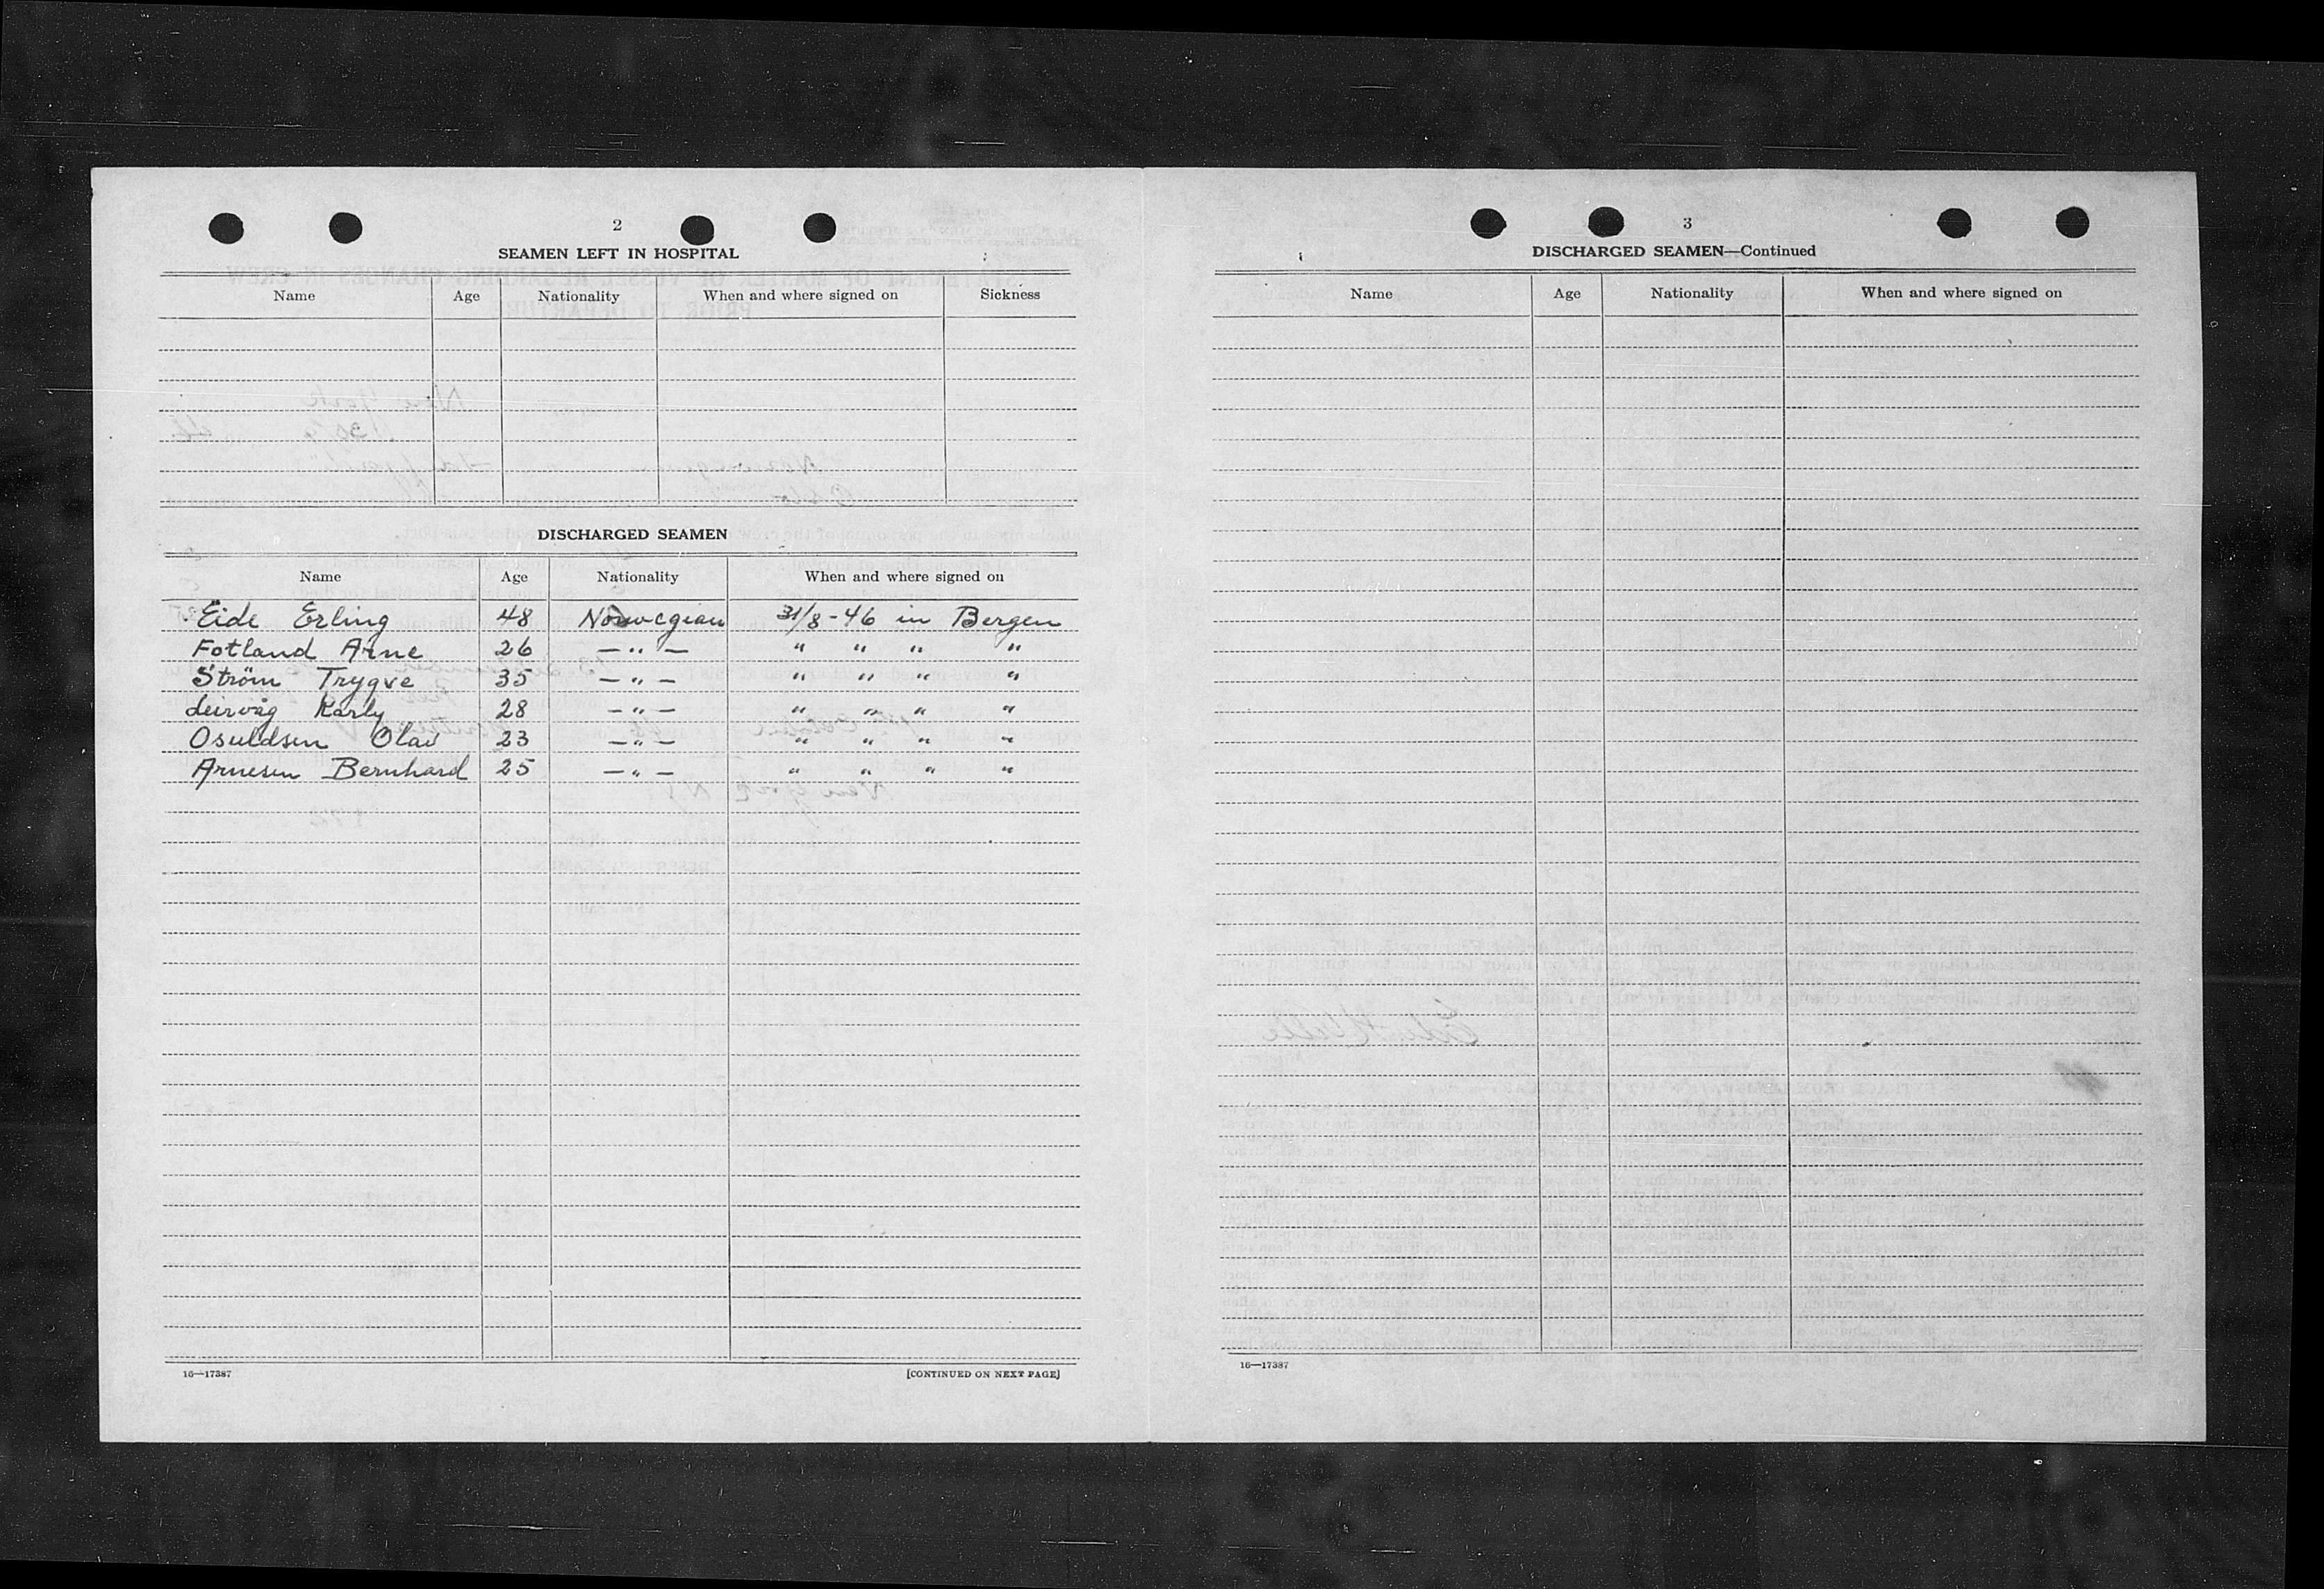 2
SEAMEN LEFT IN HOSPITAL
Name Age Nationality When and where signed on Sickness
DISCHARGED SEAMEN
Name Age Nationality When and where signed on
Eide Erling 48 Norwegian 31/8-46 in Bergen
Fotland Arne 26 — " — " " " "
Ström Trygve 35 — " — " " " "
Leirvåg Karly 28 — " — " " " "
Osuldsen Olav 23 — " — " " " "
Arnesen Bernhard 25 — " — " " " "
16—17387 [CONTINUED ON NEXT PAGE]
3
DISCHARGED SEAMEN—Continued
Name Age Nationality When and where signed on
16—17387